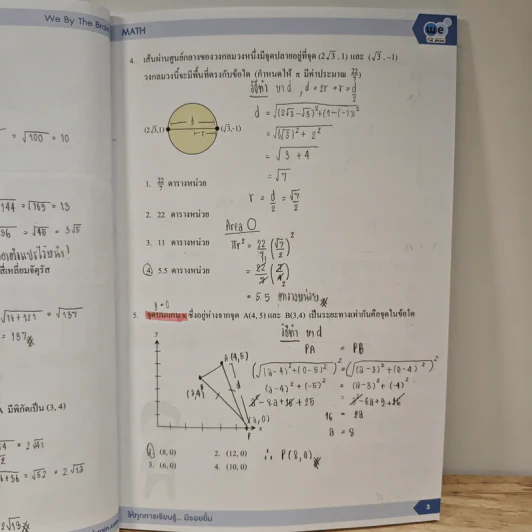 We By The Brain
MATH
we
4. เส้นผ่านศูนย์กลางของวงกลมวงหนึ่งมีจุดปลายอยู่ที่จุด (2√3 , 1) และ (√3 , -1)
วงกลมวงนี้จะมีพื้นที่ตรงกับข้อใด (กำหนดให้ π มีค่าประมาณ 22/7)
วิธีทำ หา d , d = 2r → r = d/2
d = √(2√3-√3)²+(1-(-1))²
= √(√3)² + 2²
= √3 + 4
= √7
r = d/2 = √7/2
(2√3,1) d r (√3,-1)
1. 22/7 ตารางหน่วย
2. 22 ตารางหน่วย
3. 11 ตารางหน่วย
4. 5.5 ตารางหน่วย
Area O
πr² = 22/7 (√7/2)²
= 22/7 (7/4)
= 5.5 ตารางหน่วย
y = 0
5. จุดบนแกน x ซึ่งอยู่ห่างจากจุด A(4, 5) และ B(3,4) เป็นระยะทางเท่ากันคือจุดในข้อใด
วิธีทำ หา d
PA = PB
(√(a-4)²+(0-5)²)² = (√(a-3)²+(0-4)²)²
(a-4)²+(-5)² = (a-3)²+(-4)²
a²-8a+16+25 = a²-6a+9+16
16 = 2a
a = 8
∴ P(8,0)
y
A(4,5)
(3,4)
d
(a,0)
P
x
1. (8, 0)
2. (12, 0)
3. (6, 0)
4. (10, 0)
ให้ทุกการเรียนรู้... มีรอยยิ้ม
3
= √100 = 10
= 13
= 3√5
= √137
= 137
มีพิกัดเป็น (3, 4)
= 2√41
= √52 = 2√13
2√13